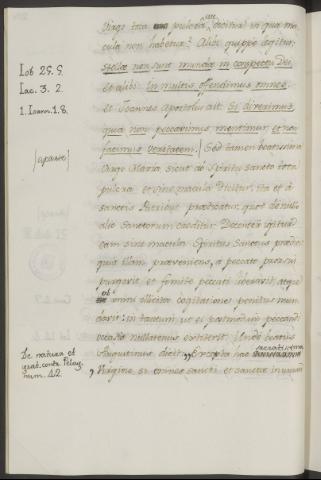 Virgo tota pulcra esse dicitur in qua ma-
cula non habetur? Alibi quippe legitur:
Iob 25. 5.
stellae non sunt mundae in conspectu Dei
Iac. 3. 2.
et alibi: In multis offendimus omnes
1. Ioann. 1. 8.
et Ioannes Apostolus ait: Si dixerimus
quia non peccavimus mentimur, et non
facimus veritatem.] Sed tamen beatissima
(a parte)
Virgo Maria sicut de Spiritu sancto tota
pulcra et sine macula dicitur, ita et a
sanctis Patribus praedicatur, quod de nullo
alio Sanctorum creditur. Decenter igitur
eam sine macula Spiritus Sanctus praedi-
quia illam praeveniens, a peccato prorsus
purgavit, et fomite peccati liberavit, atque
ab omni illicita cogitatione penitus mun-
davit: in tantum ut ei postmodum peccandi
occasio nullatenus extiterit. Unde beatus
De natura et
grat. contr. Pelag.
num. 42.
Augustinus dicit „ Excepta hac sacratissima
„ Virgine, si omnes sancti et sanctae in unum